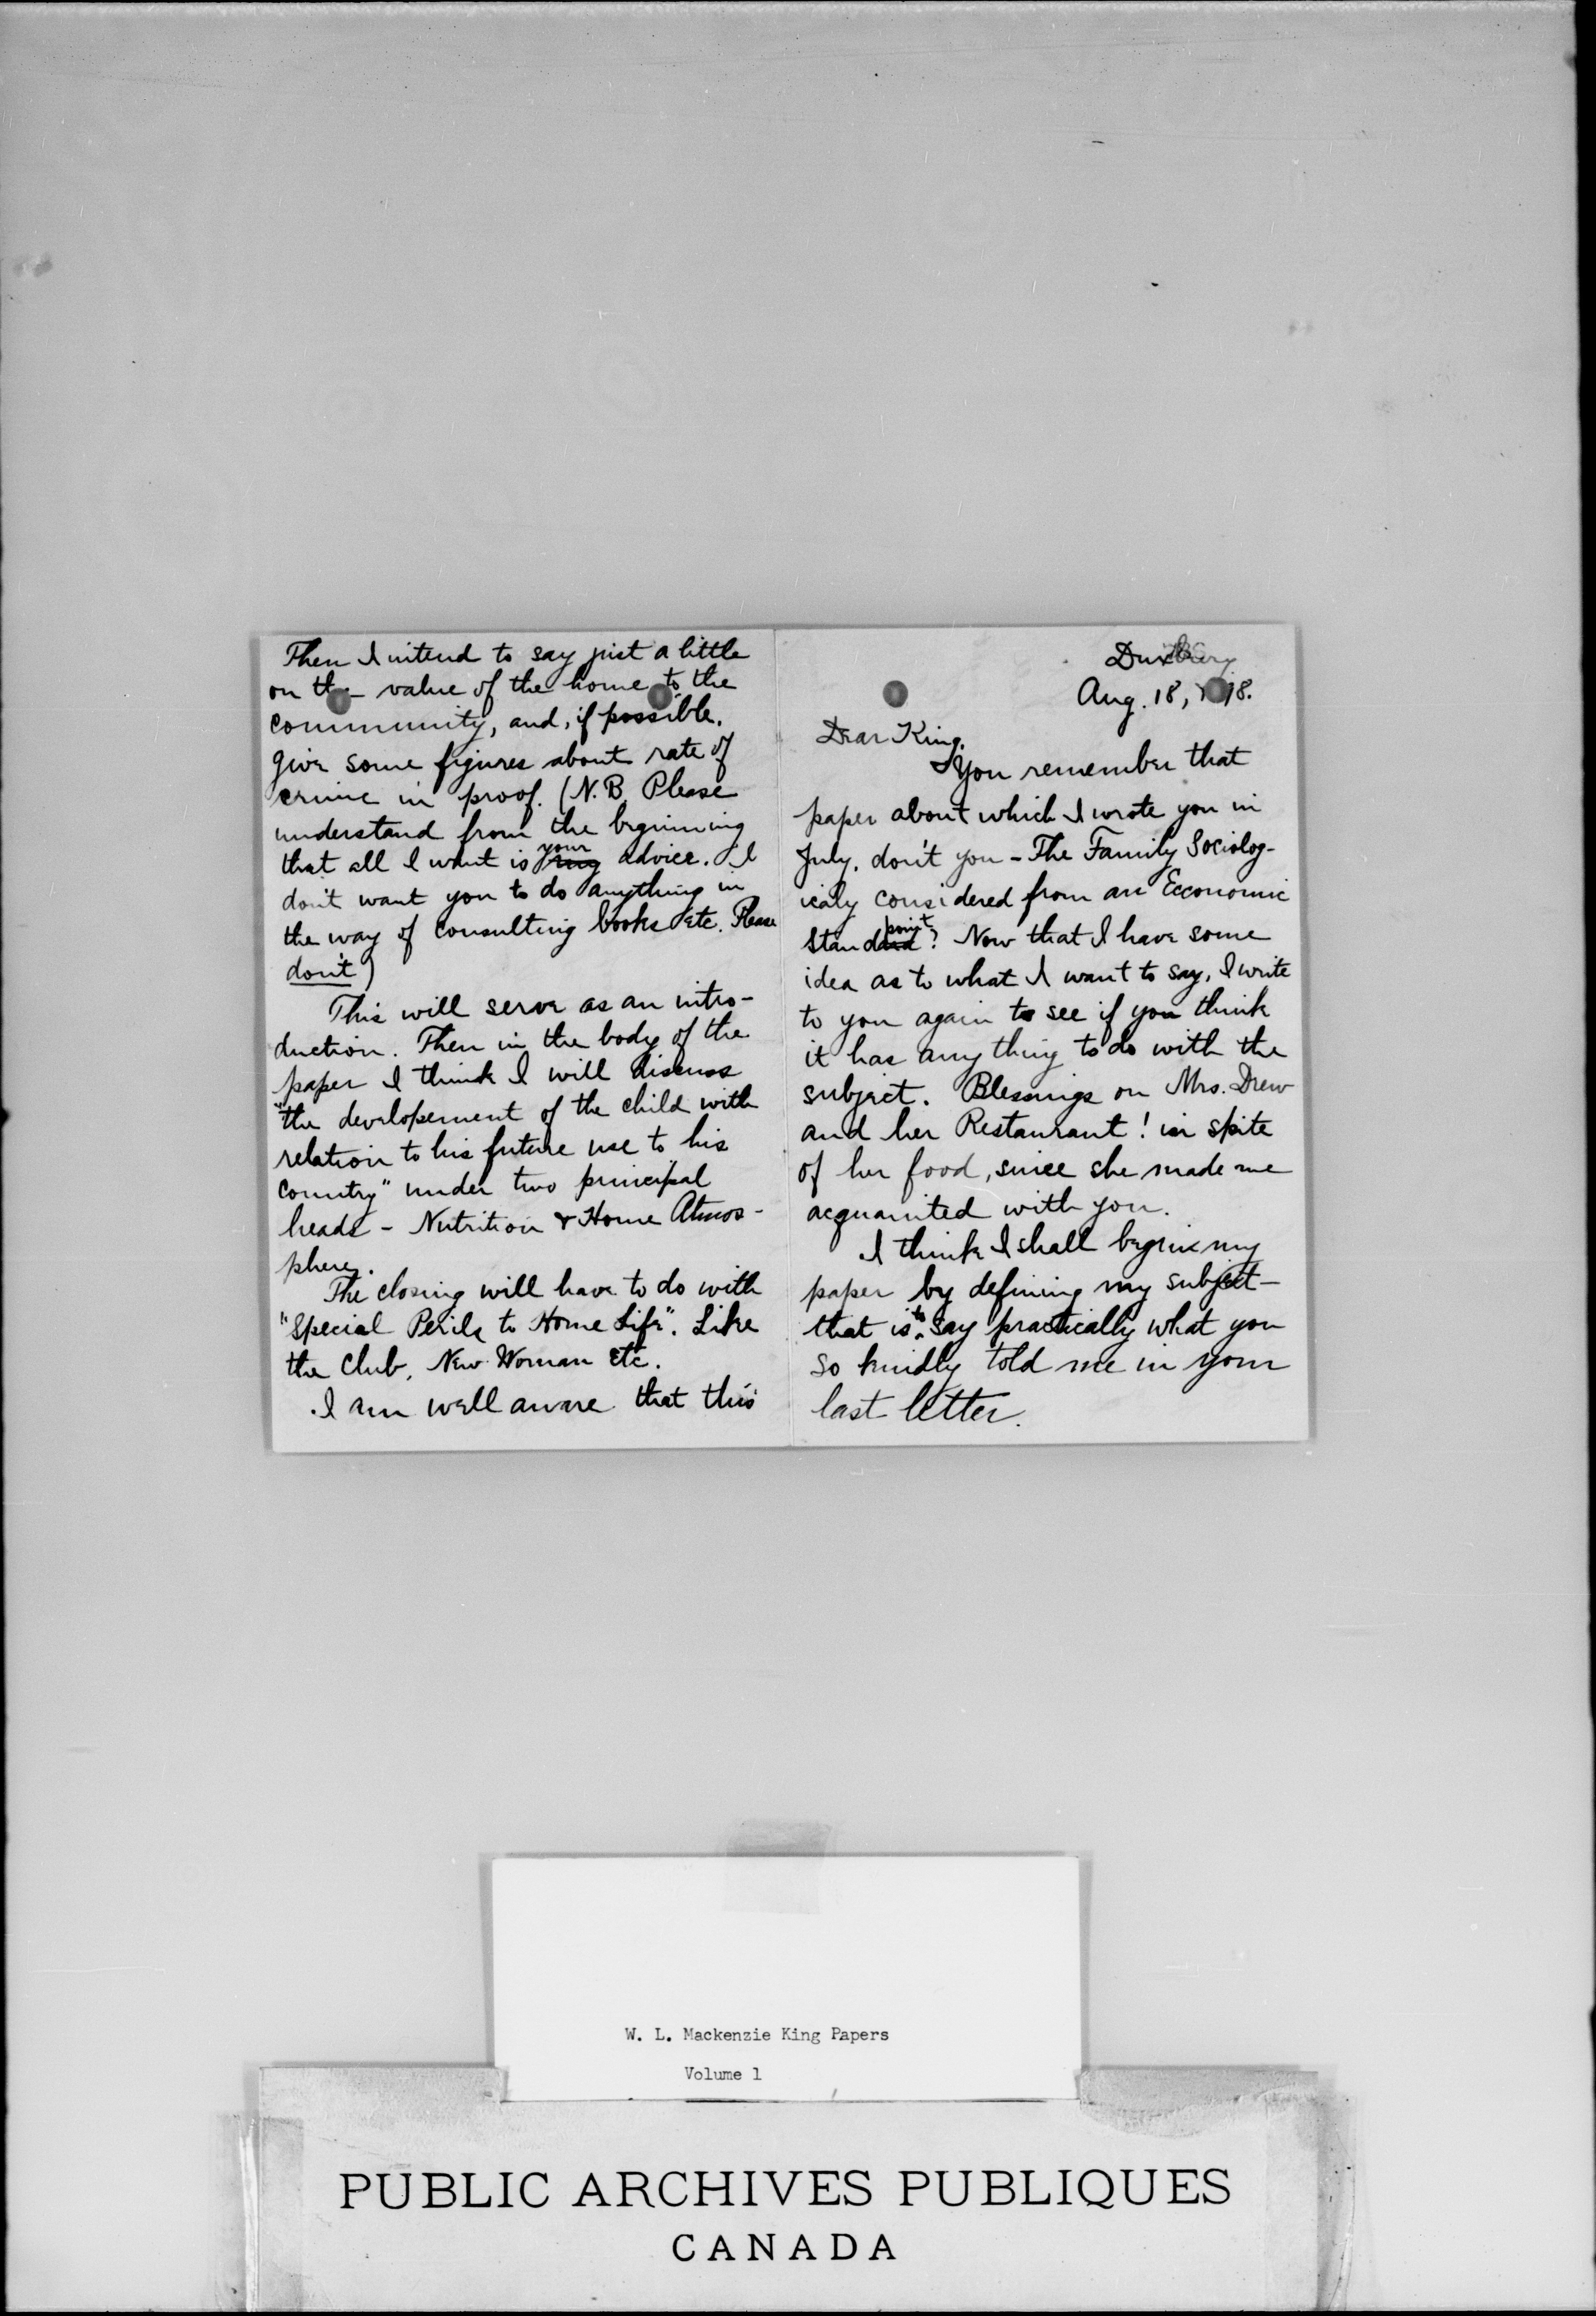 Duxbury
Aug. 18, 98.
Dear King,
You remember that
paper about which I wrote you in
July, don't you - The Family Sociolog-
icaly considered from an Ecconomic
Standpoint? Now that I have some
idea as to what I want to say, I write
to you again to see if you think
it has any thing to do with the
subject. Blessings on Mrs. Drew
and her Restaurant! in spite
of her food, since she made me
acquainted with you.
I think I shall begin my
paper by defining my subject -
that is to say practically what you
so kindly told me in your
last letter.
Then I intend to say just a little
on the value of the home to the
community, and, if possible,
give some figures about rate of
crime in proof. (N.B. Please
understand from the beginning
that all I want is your advice. I
don't want you to do anything in
the way of consulting books etc. Please
don't)
This will serve as an intro-
duction. Then in the body of the
paper I think I will discuss
"the developement of the child with
relation to his future use to his
country" under two principal
heads - Nutrition & Home Atmos-
phere.
The closing will have to do with
"Special Perils to Home Life". Like
the Club, New Woman etc.
I am well aware that this
W. L. Mackenzie King Papers
Volume 1
PUBLIC ARCHIVES PUBLIQUES
CANADA